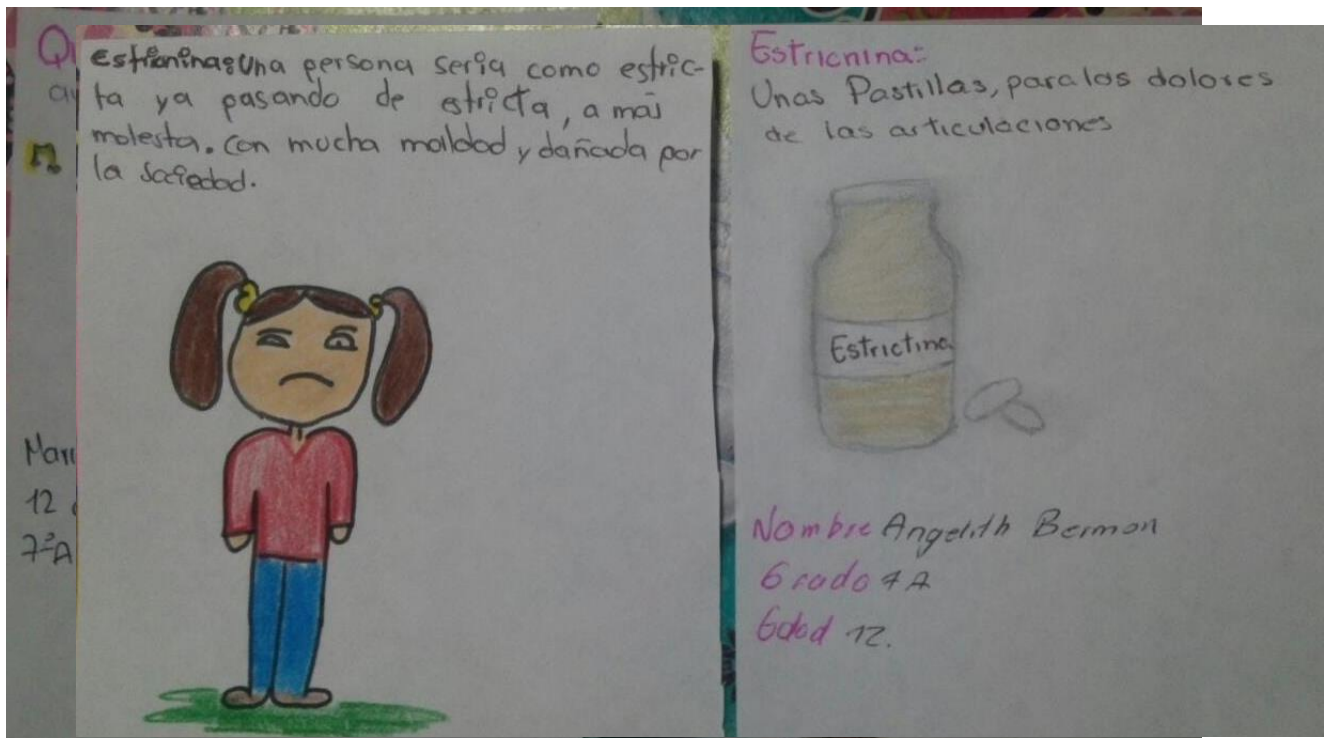 Qu
Estricnina: Una persona seria como estric-
ta ya pasando de estricta, a más
molesta. Con mucha maldad y dañada por
la sociedad.
Mari
12
7°A
Estricnina:
Unas Pastillas, para los dolores
de las articulaciones
Estrictina
Nombre Angelith Bermon
Grado 7A
Edad 12.